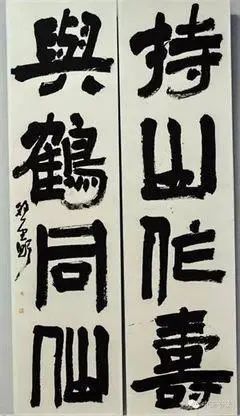 持山作壽
與鶴同仙